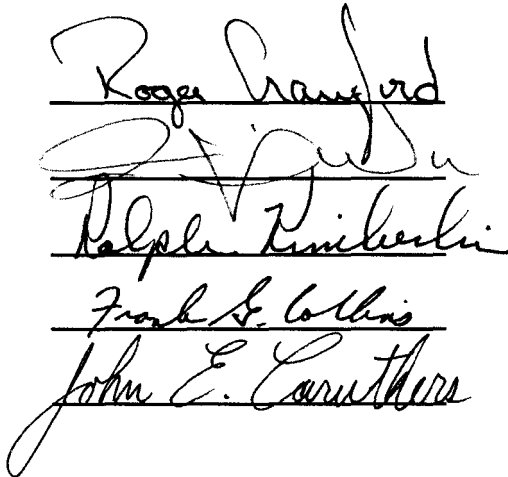 Roger Crawford
Ralph Kimberlin
Frank G. Collins
John E. Caruthers